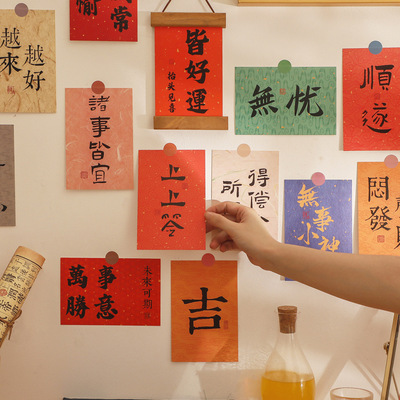 越來
越好
愉
常
皆好運
抬头見喜
無憂
順遂
諸事皆宜
上上签
得偿
所
無事
小神
悶
發
萬事
勝意
未來可期
吉